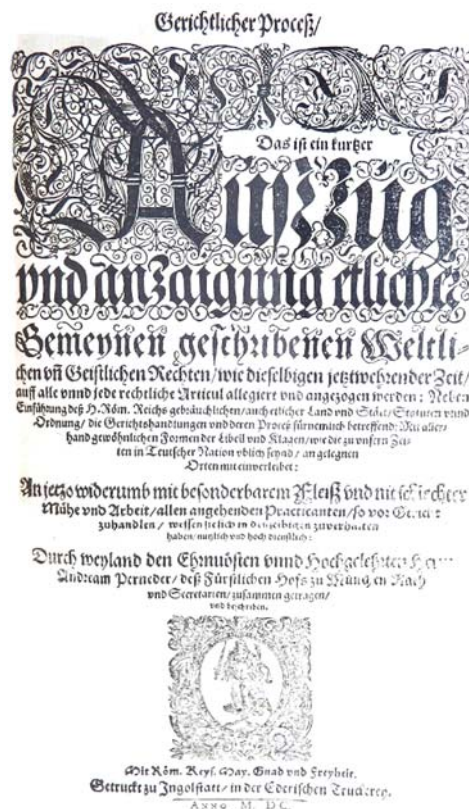 Gerichtlicher Proceß/
Das ist ein kurtzer
Außzüg
vnd anzaigung etlicher
Gemeynen geschribenen Weltli-
chen vñ Geistlichen Rechten/ wie dieselbigen jetztwehrender Zeit/
auff alle vnnd jede rechtliche Articul allegiert vnd angezogen werden: Neben
Einführung deß H. Röm. Reichs gebräuchlichen/ auch etlicher Land vnd Stätt/ Statuten vnnd
Ordnung/ die Gerichtshandlungen vnd deren Proceß fürnemlich betreffend: Mit aller-
hand gewöhnlichen Formen der Libell vnd Klagen/ wie die zu vnsern Zei-
ten in Teutscher Nation vblich seynd/ an gelegnen
Orten mit einverleibet:
An jetzo widerumb mit besonderbarem Fleiß vnd nit schlechter
Mühe vnd Arbeit/ allen angehenden Practicanten/ so vor Gericht
zuhandlen/ wessen sie sich in zuverhalten
haben/ nutzlich vnd hoch dienstlich:
Durch weyland den Ehrnuösten vnnd Hochgelehrten
Andream Perneder/ deß Fürstlichen Hofs zu München Rath
vnd Secretarien/ zusammen getragen/
vnd beschriben.
Mit Röm. Keys. May. Gnad vnd Freyheit.
Getruckt zu Ingolstatt/ in der Ederischen Truckerey.
Anno M. DC